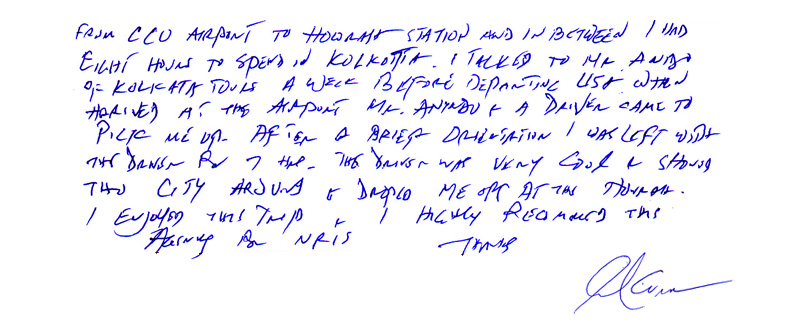 FROM CCU AIRPORT TO HOWRAH STATION AND IN BETWEEN I HAD
EIGHT HOURS TO SPEND IN KOLKOTTA. I TALKED TO MR. ANINDO
OF KOLKATA TOURS A WEEK BEFORE DEPARTING USA. WHEN
I ARRIVED AT THE AIRPORT MR. ANINDO & A DRIVER CAME TO
PICK ME UP. AFTER A BRIEF ORIENTATION I WAS LEFT WITH
THE DRIVER FOR 7 HRS. THE DRIVER WAS VERY COOL & SHOWED
THE CITY AROUND & DROPED ME OFF AT THE HOWRAH.
I ENJOYED THIS TRIP & I HIGHLY RECOMMEND THIS
AGENCY FOR NRIS THANKS